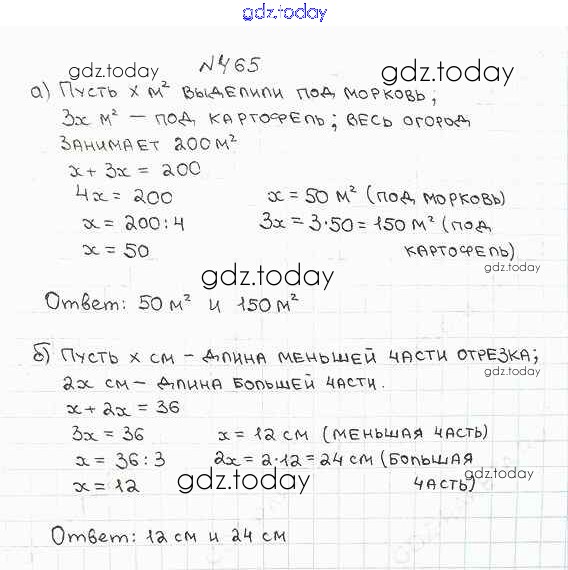 gdz.today
№465
gdz.today
gdz.today
а) Пусть x м² выделили под морковь;
3x м² – под картофель; весь огород
занимает 200 м²
x + 3x = 200
4x = 200 x = 50 м² (под морковь)
x = 200 : 4 3x = 3·50 = 150 м² (под
x = 50 картофель)
gdz.today
gdz.today
Ответ: 50 м² и 150 м²
б) Пусть x см – длина меньшей части отрезка;
gdz.today
2x см – длина большей части.
x + 2x = 36
3x = 36 x = 12 см (меньшая часть)
x = 36 : 3 2x = 2·12 = 24 см (большая
x = 12 часть)
gdz.today
gdz.today
Ответ: 12 см и 24 см